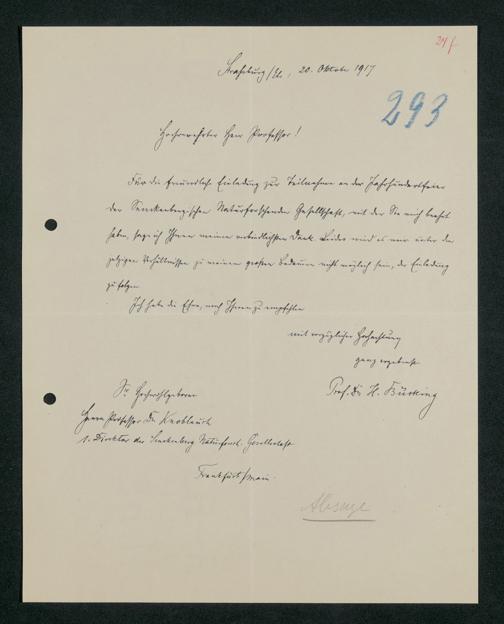 24/
Straßburg /Els., 20. Oktober 1917
293
Hochverehrter Herr Professor!
Für die freundliche Einladung zur Teilnahme an der Jahrhundertfeier
der Senckenbergischen Naturforschenden Gesellschaft, mit der Sie mich beehrt
haben, sage ich Ihnen meinen verbindlichsten Dank. Leider wird es mir unter den
jetzigen Verhältnissen zu meinem großen Bedauern nicht möglich sein, der Einladung
zu folgen.
Ich habe die Ehre, mich Ihnen zu empfehlen
mit vorzüglicher Hochachtung
ganz ergebenst
Prof. Dr H. Bücking
Sr Hochwohlgeboren
Herrn Professor Dr Knoblauch
1. Direktor der Senckenberg. Naturforsch. Gesellschaft
Frankfurt/Main.
Absage